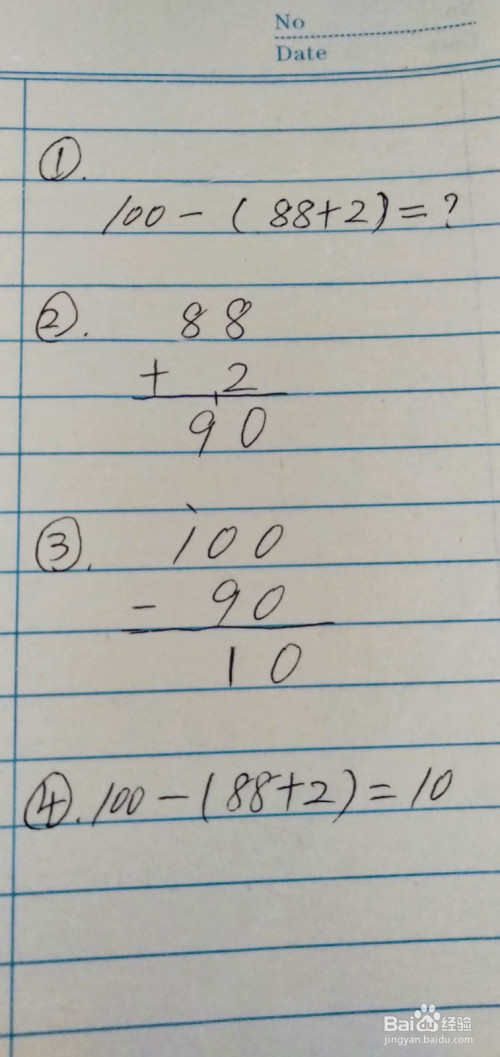 No
Date
①.
100-(88+2)=?
②. 88
+ 2
90
③. 100
- 90
10
④. 100-(88+2)=10
Baidu经验
jingyan.baidu.com